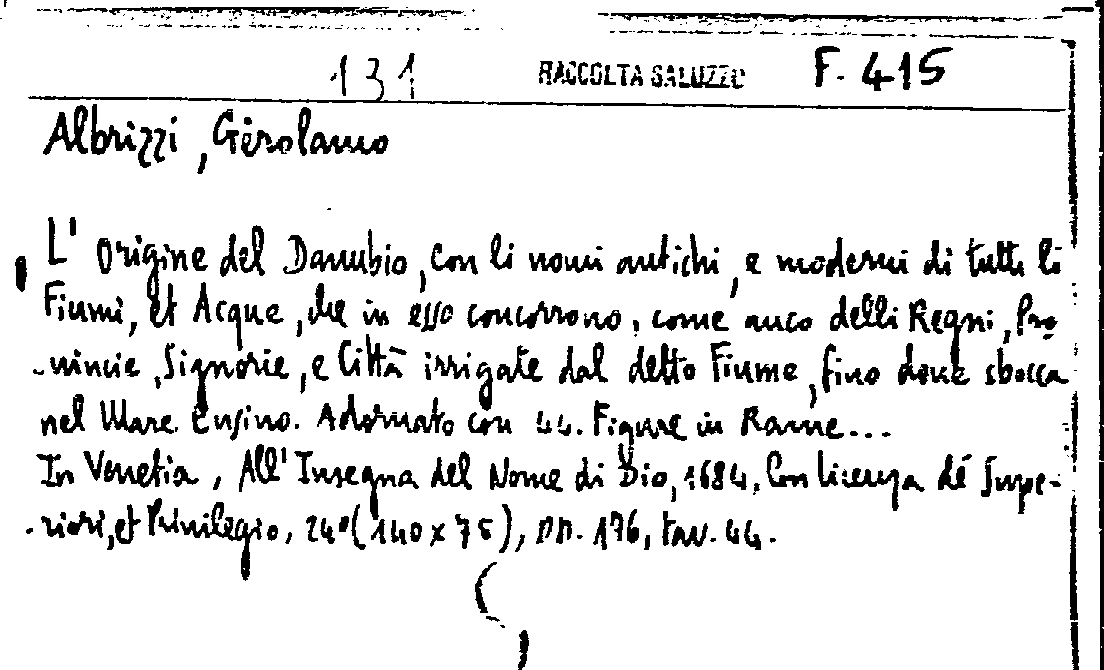 131 RACCOLTA SALUZZO F. 415
Albrizzi, Gerolamo
L' Origine del Danubio, con li nomi antichi, e moderni di tutti li
Fiumi, et Acque, che in esso concorrono, come anco delli Regni, Pro
-vincie, Signorie, e Città irrigate dal detto Fiume, fino doue sbocca
nel Mare Eusino. Adornato con 44. Figure in Rame...
In Venetia, All' Insegna del Nome di Dio, 1684. Con licenza dé Supe-
-riori, et Priuilegio, 24° (140 x 75), pp. 176, tav. 44.